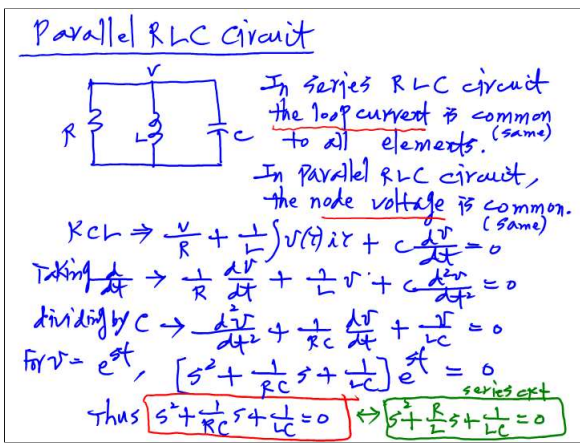 Parallel RLC Circuit
V
R L C
In series RLC circuit
the loop current is common
(same)
to all elements.
In parallel RLC circuit,
the node voltage is common.
(same)
KCL ⇒ v/R + 1/L ∫ v(τ) dτ + C dv/dt = 0
Taking d/dt → 1/R dv/dt + 1/L v + C d²v/dt² = 0
dividing by C → d²v/dt² + 1/RC dv/dt + v/LC = 0
For v = e^st, [s² + 1/RC s + 1/LC] e^st = 0
series ckt
Thus s² + 1/RC s + 1/LC = 0 ↔ s² + R/L s + 1/LC = 0